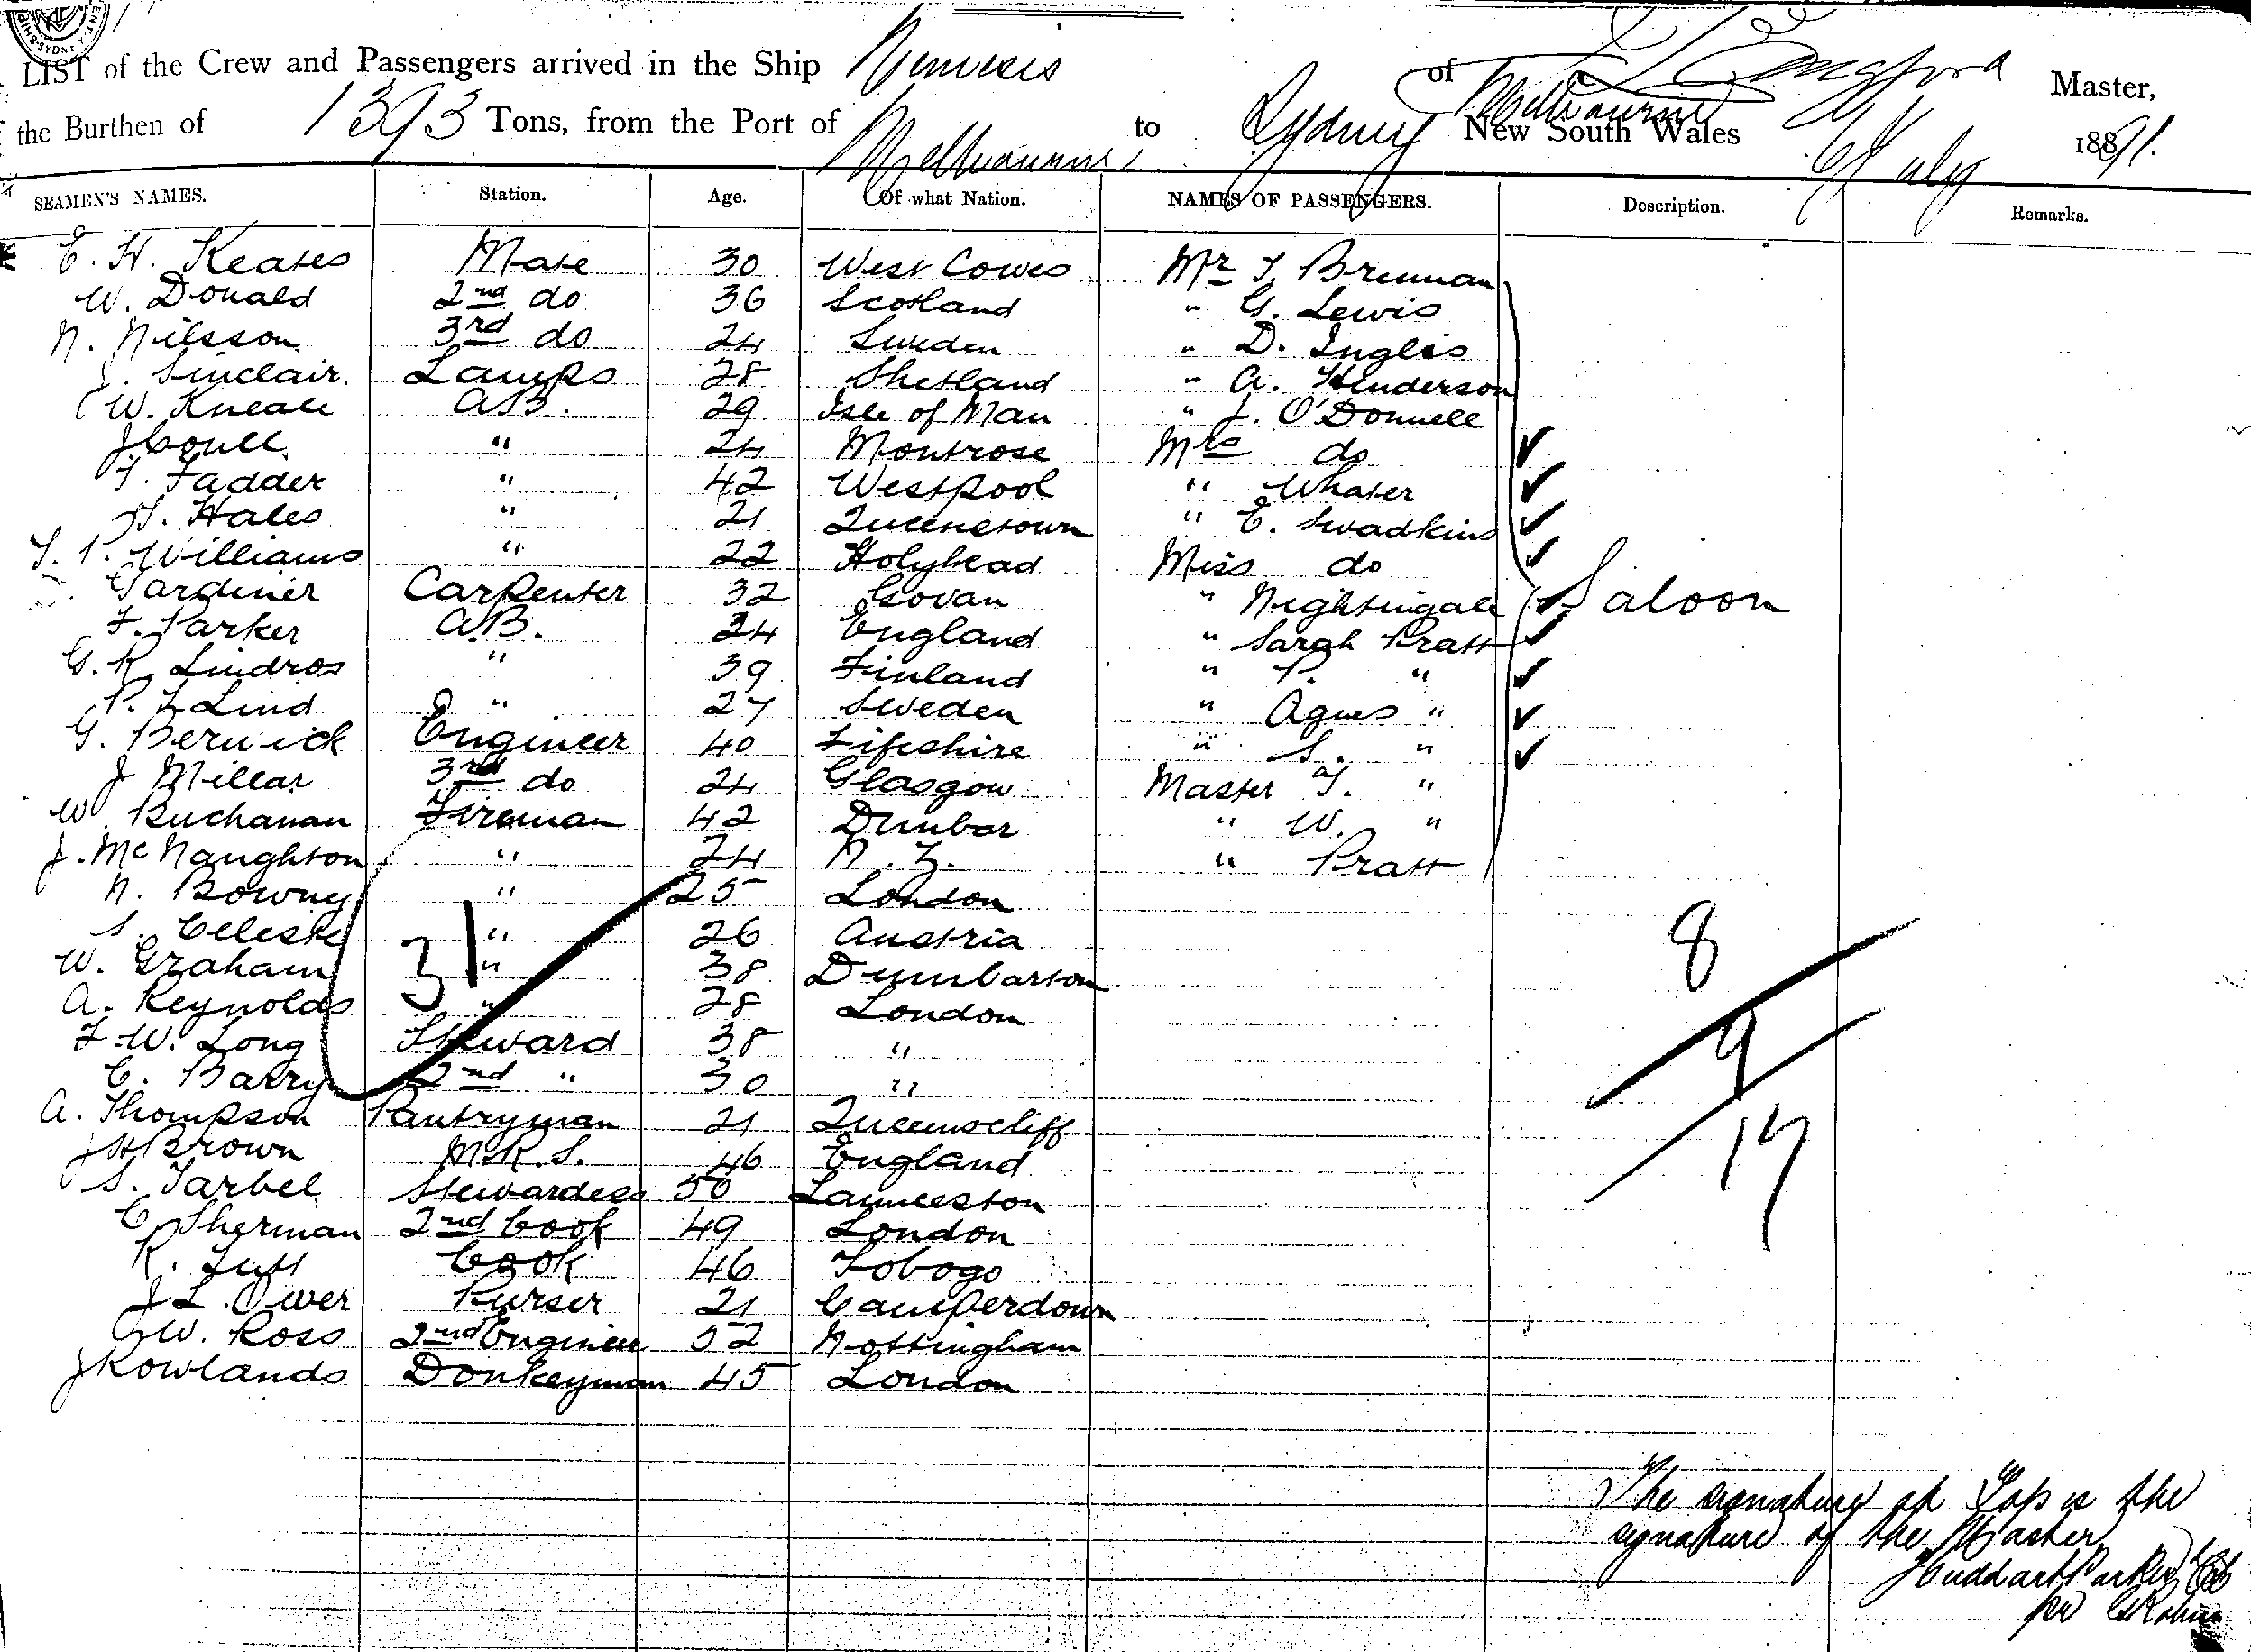 LIST of the Crew and Passengers arrived in the Ship Nemesis of Melbourne Master,
the Burthen of 1393 Tons, from the Port of Melbourne to Sydney New South Wales 6 July 1891.
SEAMEN'S NAMES. Station. Age. Of what Nation. NAMES OF PASSENGERS. Description. Remarks.
E. H. Keates Mate 30 West Cowes Mr T. Brennan
W. Donald 2nd do 36 Scotland " G. Lewis
N. Nilsson 3rd do 24 Sweden " D. Inglis
J. Sinclair. Lamps 28 Shetland " A. Henderson
W. Kneale A.B. 29 Isle of Man " J. O'Donnell
J Coull " 24 Montrose Mrs do
T. Fadder " 42 Westpool " Whater
H. Hales " 21 Queenstown " E. Swadkins
T. P. Williams " 22 Holyhead Miss do
Gardiner Carpenter 32 Govan " Nightingale Saloon
F. Parker A.B. 24 England " Sarah Pratt
G. R. Lindros " 39 Finland " P. "
P. F Lind " 27 Sweden " Agnes "
G. Berwick Engineer 40 Fifeshire " S. "
J Millar 3rd do 24 Glasgow Master T. "
W. Buchanan Fireman 42 Dunbar " W. "
J. McNaughton " 24 N. Z. " Pratt
N. Bowny " 25 London
S. Celeste " 26 Austria 8
W. Graham 31 " 38 Dumbarton
A. Reynolds " 28 London
F. W. Long Steward 38 " 9
C. Barry 2nd " 30 "
A. Thompson Pantryman 21 Queenscliff
J H Brown M.R.S. 46 England 17
S. Tarbel Stewardess 50 Launceston
C. Sherman 2nd Cook 49 London
R. Tutt Cook 46 Tobogo
J L. Ower Purser 21 Camperdown
G W. Ross 2nd Engineer 52 Nottingham
J Rowlands Donkeyman 45 London
The signature at Top is the
signature of the Master
Huddart Parker & Co
per